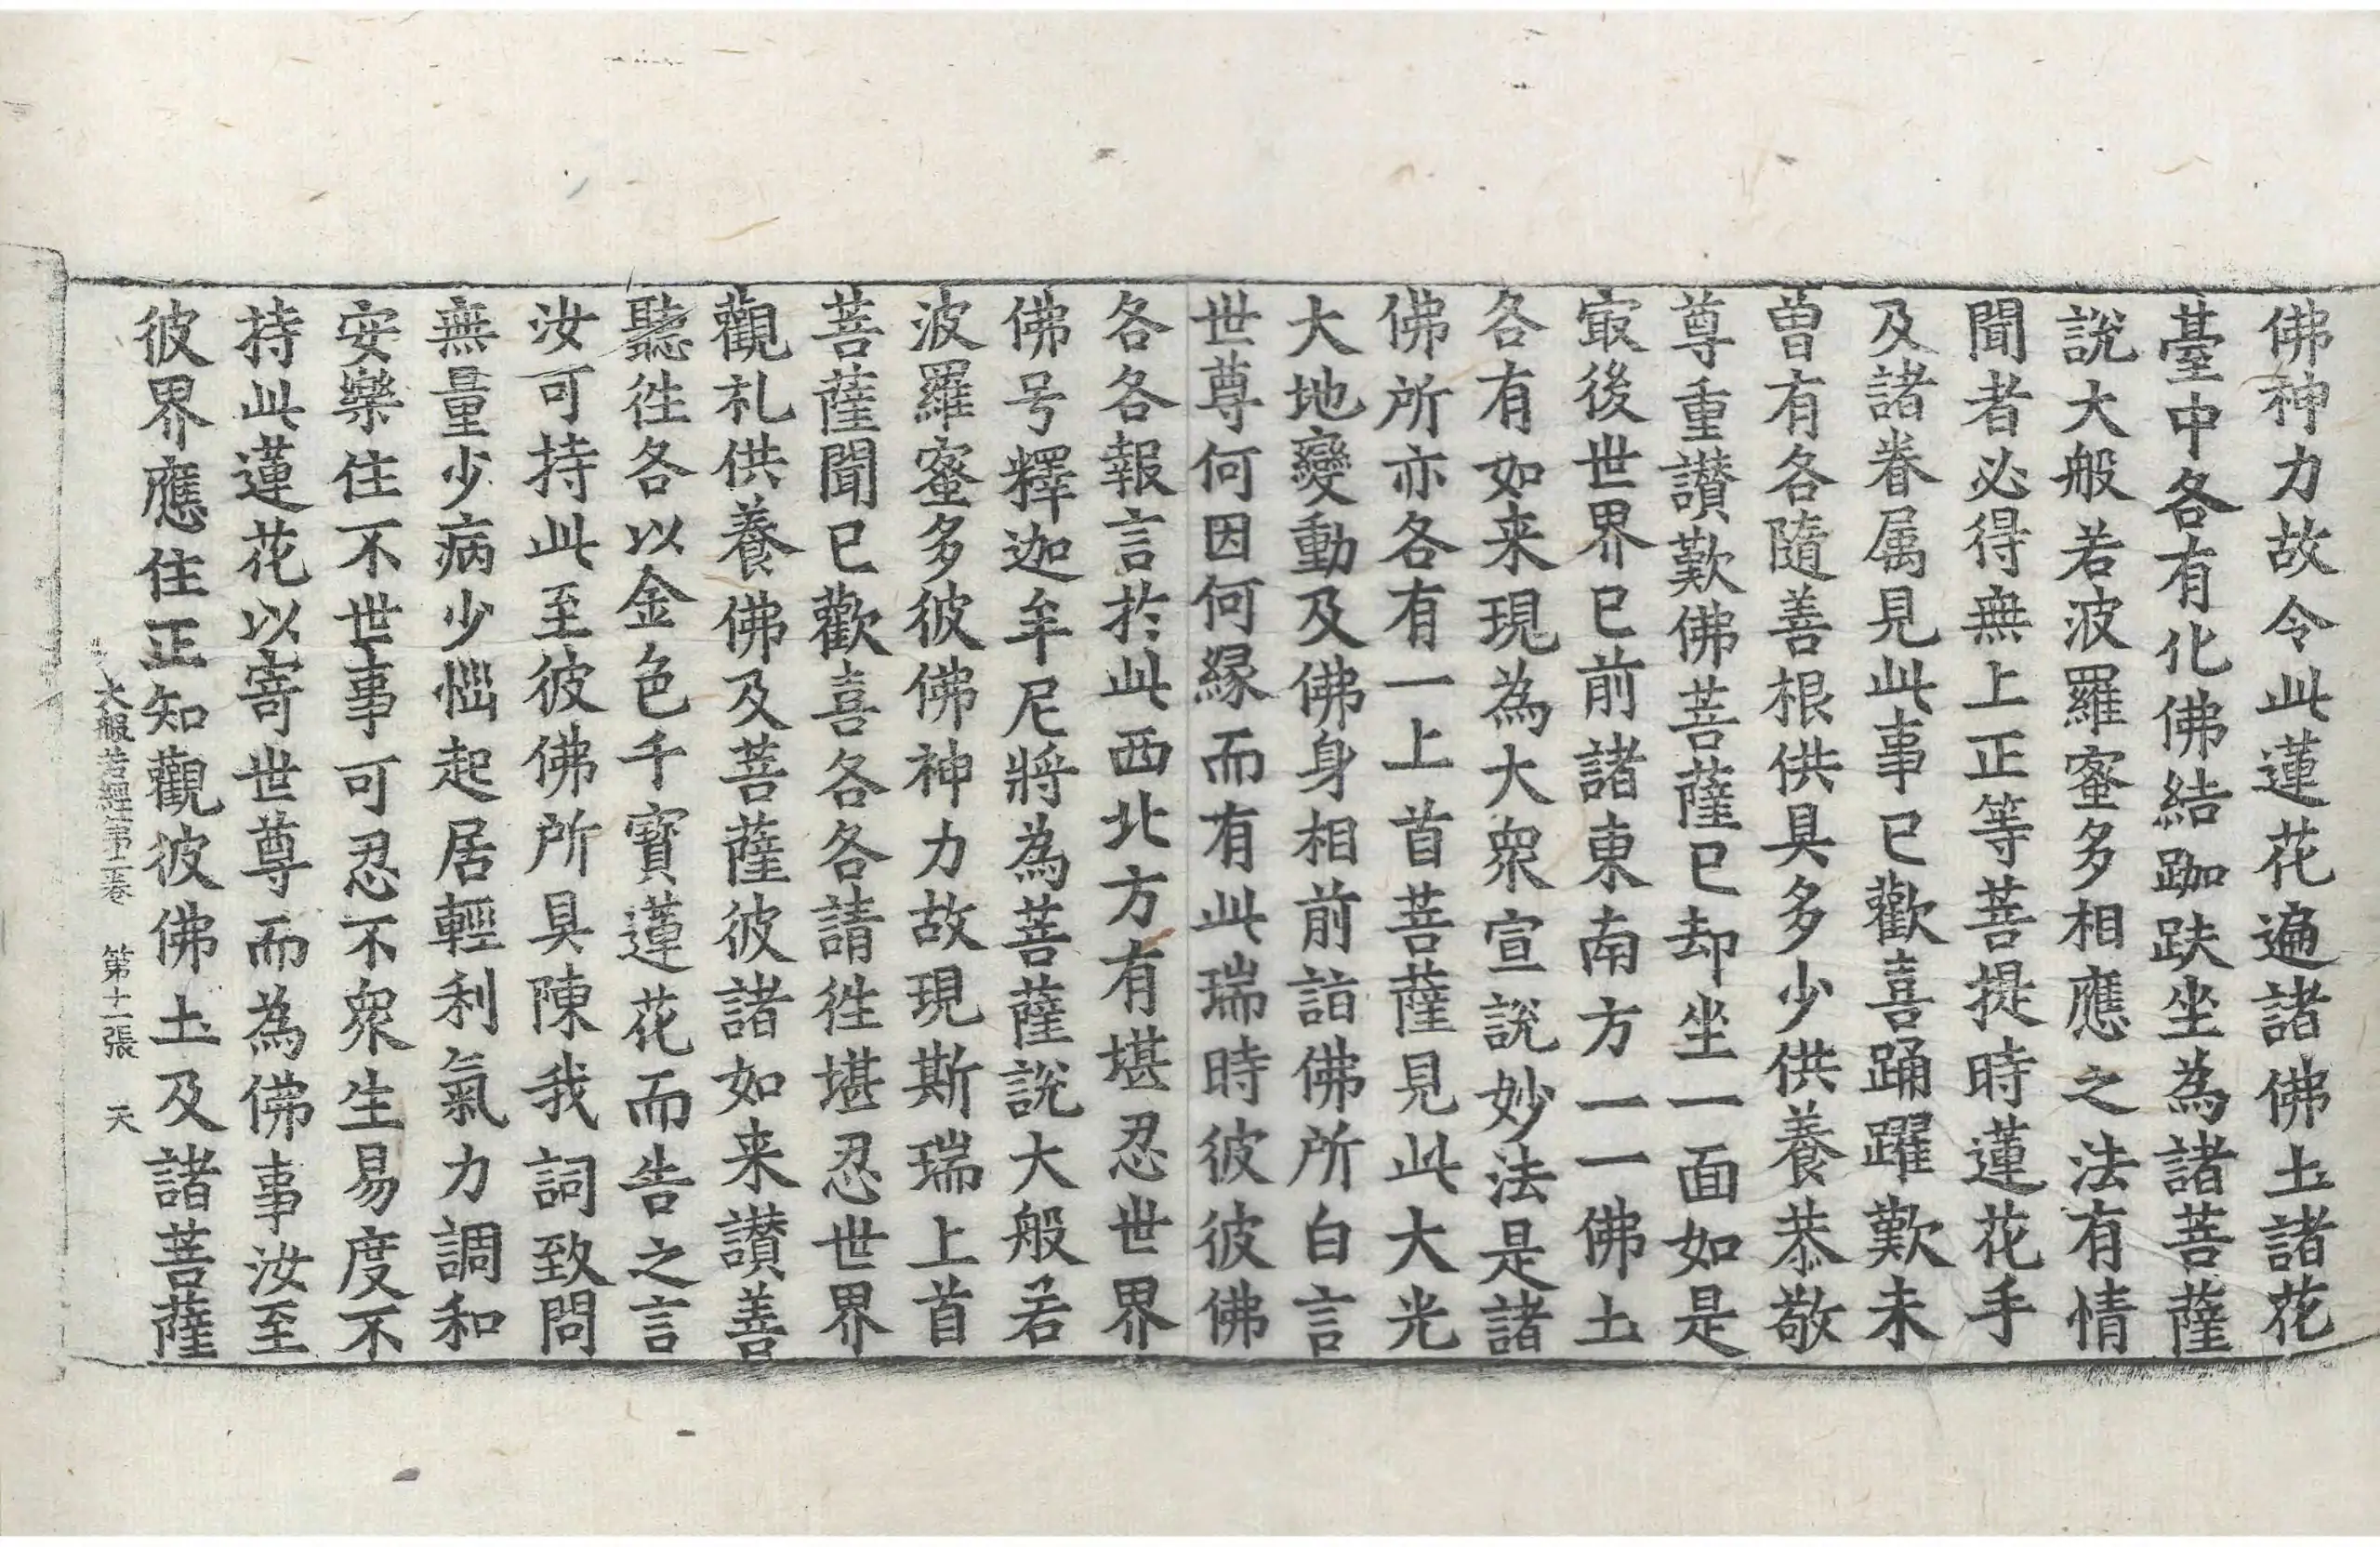 佛神力故令此蓮花遍諸佛土諸花
臺中各有化佛結跏趺坐為諸菩薩
說大般若波羅蜜多相應之法有情
聞者必得無上正等菩提時蓮花手
及諸眷属見此事已歡喜踊躍歎未
曾有各隨善根供具多少供養恭敬
尊重讃歎佛菩薩已却坐一面如是
㝡後世界已前諸東南方一一佛土
各有如来現為大衆宣說妙法是諸
佛所亦各有一上首菩薩見此大光
大地變動及佛身相前詣佛所白言
世尊何因何緣而有此瑞時彼彼佛
各各報言於此西北方有堪忍世界
佛号釋迦牟尼將為菩薩說大般若
波羅蜜多彼佛神力故現斯瑞上首
菩薩聞已歡喜各各請徃堪忍世界
觀礼供養佛及菩薩彼諸如来讃善
聽徃各以金色千寶蓮花而告之言
汝可持此至彼佛所具陳我詞致問
無量少病少惱起居輕利氣力調和
安樂住不世事可忍不衆生易度不
持此蓮花以寄世尊而為佛事汝至
彼界應住正知觀彼佛土及諸菩薩
大般若經第二卷 第十一張 天